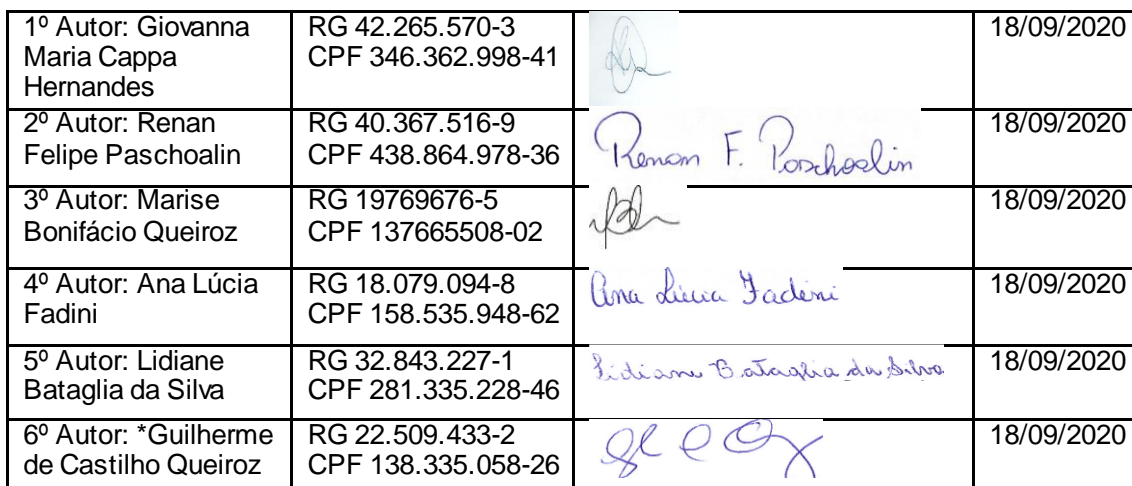 1º Autor: Giovanna
Maria Cappa
Hernandes
RG 42.265.570-3
CPF 346.362.998-41
18/09/2020
2º Autor: Renan
Felipe Paschoalin
RG 40.367.516-9
CPF 438.864.978-36
Renan F. Paschoalin
18/09/2020
3º Autor: Marise
Bonifácio Queiroz
RG 19769676-5
CPF 137665508-02
18/09/2020
4º Autor: Ana Lúcia
Fadini
RG 18.079.094-8
CPF 158.535.948-62
Ana Lúcia Fadini
18/09/2020
5º Autor: Lidiane
Bataglia da Silva
RG 32.843.227-1
CPF 281.335.228-46
Lidiane Bataglia da Silva
18/09/2020
6º Autor: *Guilherme
de Castilho Queiroz
RG 22.509.433-2
CPF 138.335.058-26
18/09/2020